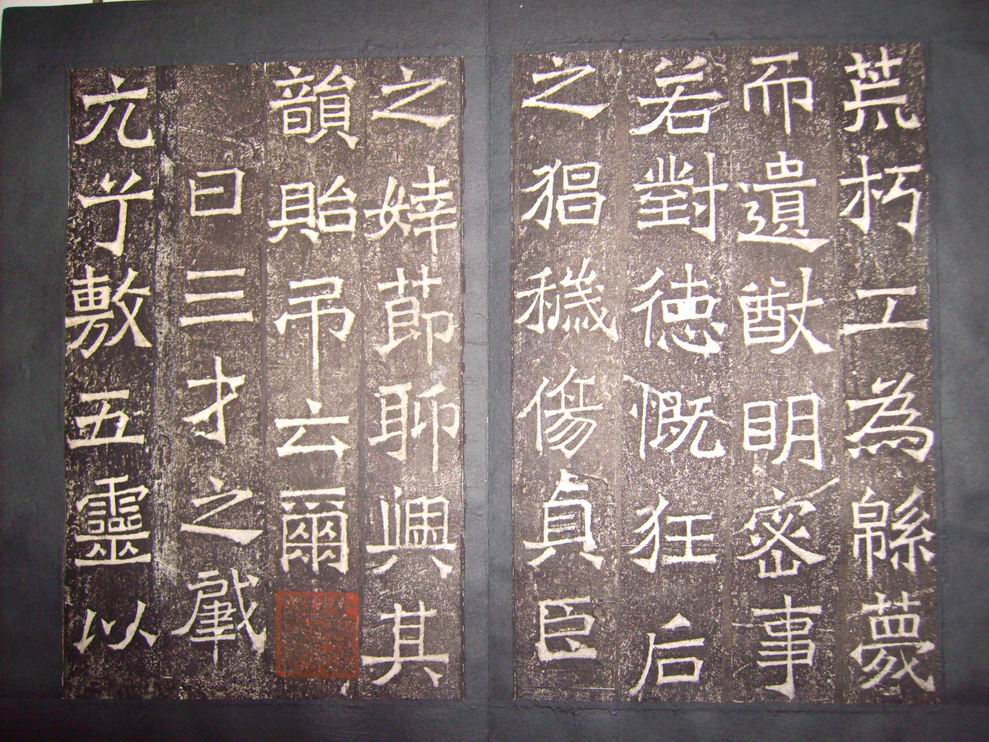 荒朽工為緜
而遺猷明密事
若對德慨狂后
之猖穢傷貞臣
之婞節聊興其
韻貽吊云爾
曰三才之肇
元兮敷五靈以